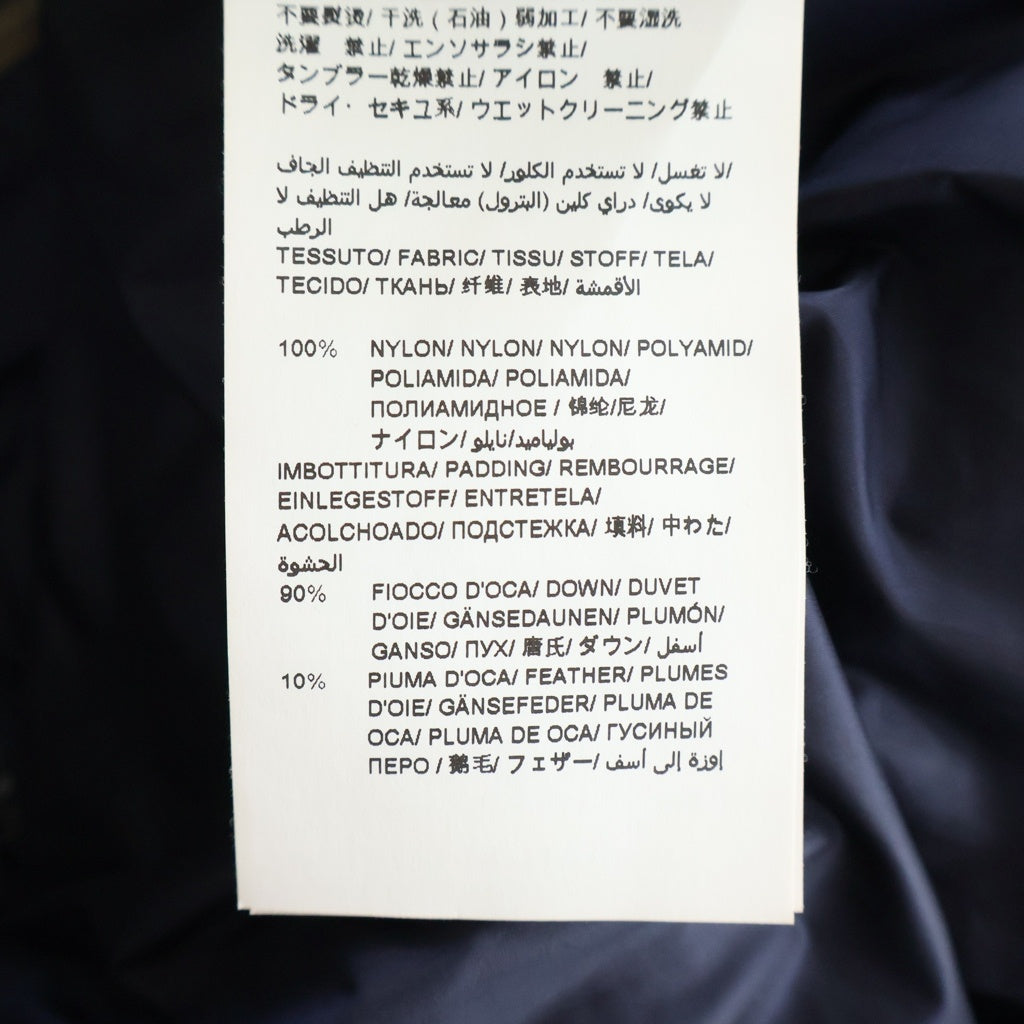 不要熨烫/ 干洗 ( 石油 ) 弱加工/ 不要湿洗
洗濯 禁止/ エンソサラシ禁止/
タンブラー乾燥禁止/ アイロン 禁止/
ドライ· セキユ系/ ウエットクリーニング禁止
لا تغسل/ لا تستخدم الكلور/ لا تستخدم التنظيف الجاف/
لا يكوى/ دراي كلين (البترول) معالجة/ هل التنظيف لا
الرطب
TESSUTO/ FABRIC/ TISSU/ STOFF/ TELA/
TECIDO/ ТКАНЬ/ 纤维/ 表地/ الأقمشة
100% NYLON/ NYLON/ NYLON/ POLYAMID/
POLIAMIDA/ POLIAMIDA/
ПОЛИАМИДНОЕ / 锦纶/尼龙/
ナイロン/ بولياميد/نايلو
IMBOTTITURA/ PADDING/ REMBOURRAGE/
EINLEGESTOFF/ ENTRETELA/
ACOLCHOADO/ ПОДСТЕЖКА/ 填料/ 中わた/
الحشوة
90% FIOCCO D'OCA/ DOWN/ DUVET
D'OIE/ GÄNSEDAUNEN/ PLUMÓN/
GANSO/ ПУХ/ 唐氏/ ダウン/ أسفل
10% PIUMA D'OCA/ FEATHER/ PLUMES
D'OIE/ GÄNSEFEDER/ PLUMA DE
OCA/ PLUMA DE OCA/ ГУСИНЫЙ
ПЕРО / 鹅毛/ フェザー/ إوزة إلى أسف